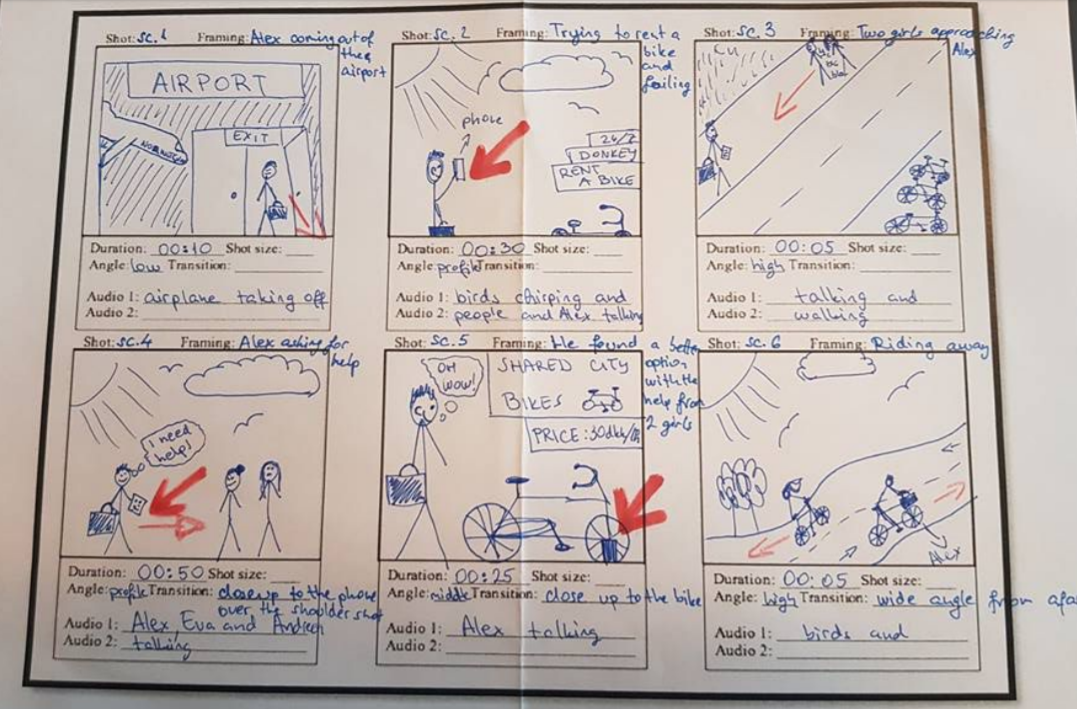 Shot: SC. 1 Framing: Alex coming out of the airport
AIRPORT
EXIT
Duration: 00:10 Shot size:
Angle: low Transition:
Audio 1: airplane taking off
Audio 2:
Shot: SC. 2 Framing: Trying to rent a bike and failing
phone
24/7
DONKEY
RENT
A BIKE
Duration: 00:30 Shot size:
Angle: profile Transition:
Audio 1: birds chirping and
Audio 2: people and Alex talking
Shot: SC. 3 Framing: Two girls approaching Alex
bla
Duration: 00:05 Shot size:
Angle: high Transition:
Audio 1: talking and
Audio 2: walking
Shot: SC. 4 Framing: Alex asking for help
I need
help!
Duration: 00:50 Shot size:
Angle: profile Transition: closeup to the phone
over the shoulder shot
Audio 1: Alex Eva and
Audio 2: talking
Shot: SC. 5 Framing: He found a better option with the help from 2 girls
OH
WOW!
SHARED CITY
BIKES
PRICE: 30dkk/
Duration: 00:25 Shot size:
Angle: middle Transition: close up to the bike
Audio 1: Alex talking
Audio 2:
Shot: SC. 6 Framing: Riding away
Alex
Duration: 00:05 Shot size:
Angle: high Transition: wide angle from afar
Audio 1: birds and
Audio 2: